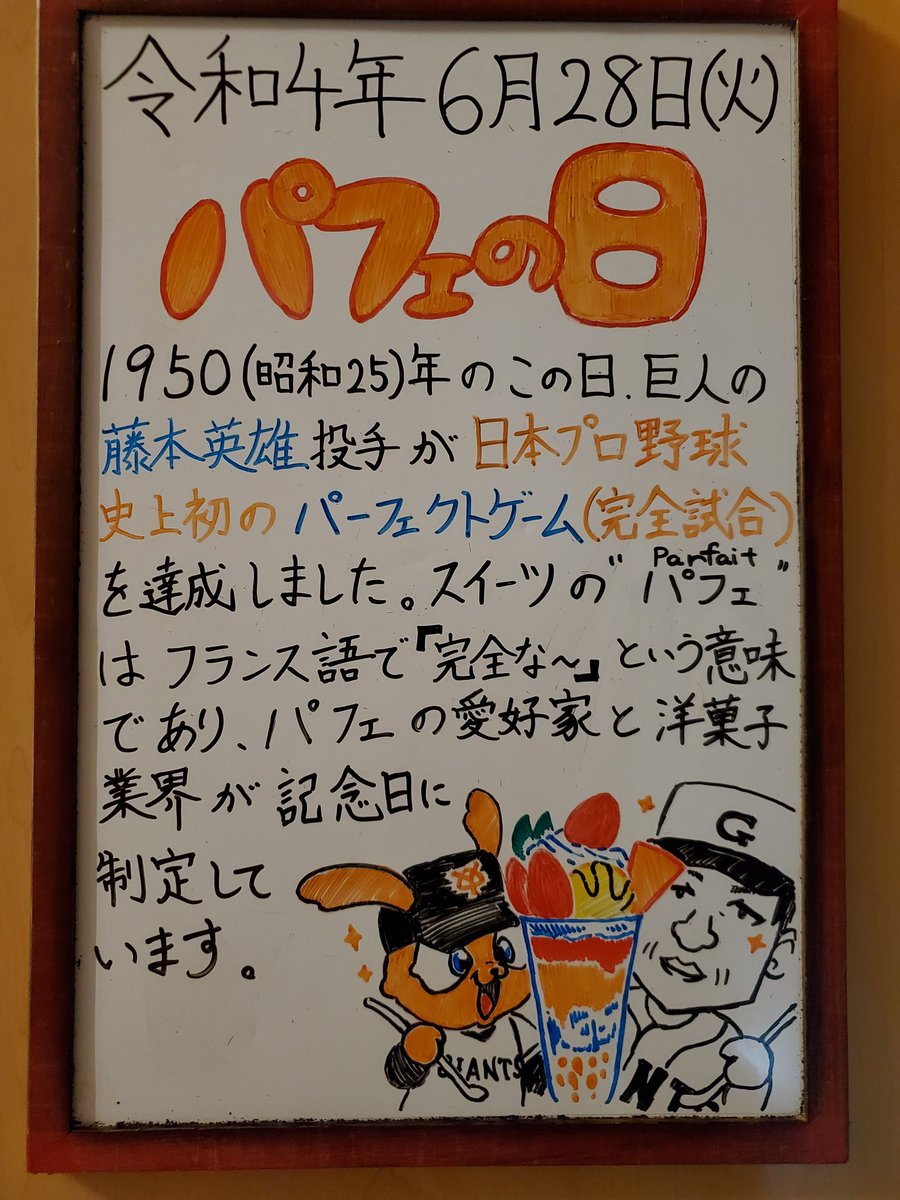 令和4年 6月28日(火)
パフェの日
1950(昭和25)年のこの日、巨人の
藤本英雄投手が日本プロ野球
史上初のパーフェクトゲーム(完全試合)
を達成しました。スイーツの"パフェ"
Parfait
はフランス語で『完全な〜』という意味
であり、パフェの愛好家と洋菓子
業界が記念日に
制定して
います。
G
GIANTS
N